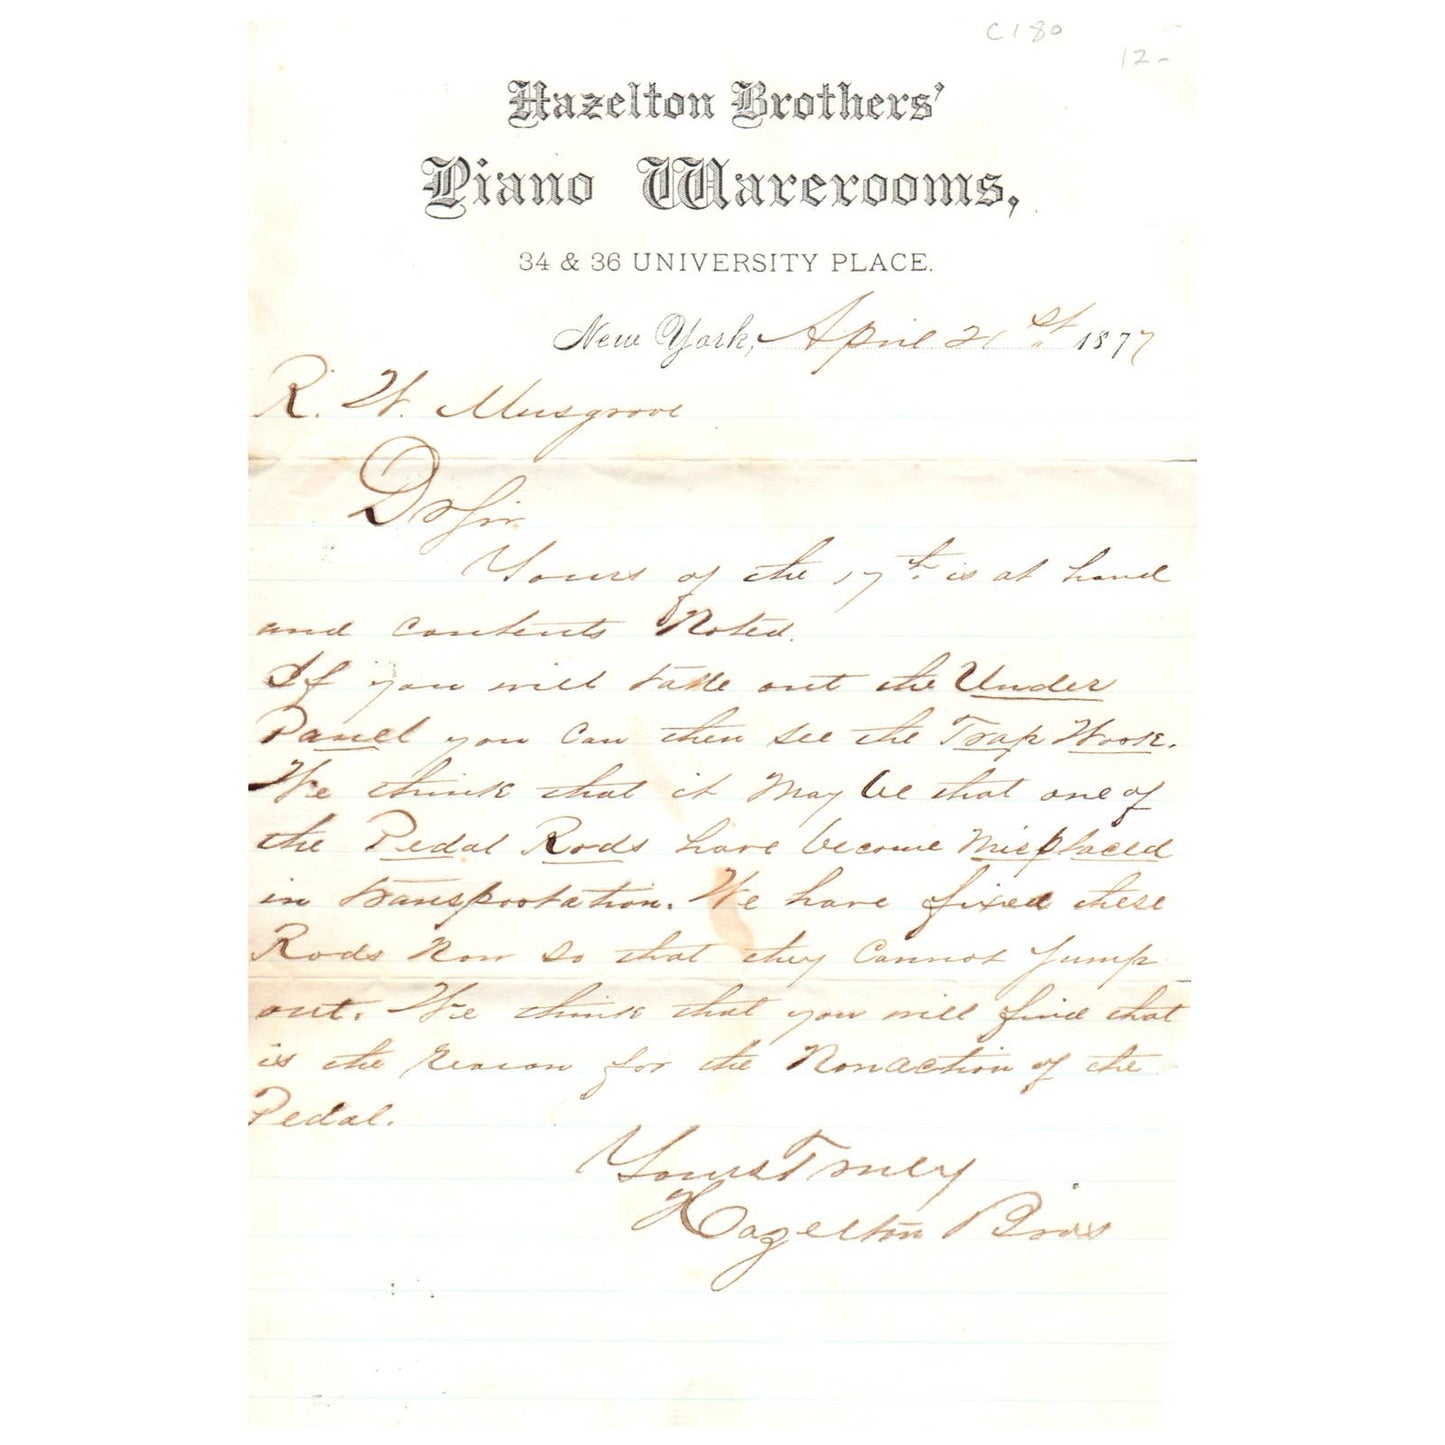 C180
12-
Hazelton Brothers'
Piano Warerooms,
34 & 36 UNIVERSITY PLACE.
New York, April 21st 1877
R. W. Musgrove
Dr Sir
Yours of the 17th. is at hand
and contents Noted.
If you will take out the Under
Panel you can then see the Trap Work.
We think that it May be that one of
the Pedal Rods have become Misplaced
in transportation. We have fixed these
Rods Now so that they Cannot Jump
out. We think that you will find that
is the reason for the Nonaction of the
Pedal.
Yours Truly
Hazelton Bros